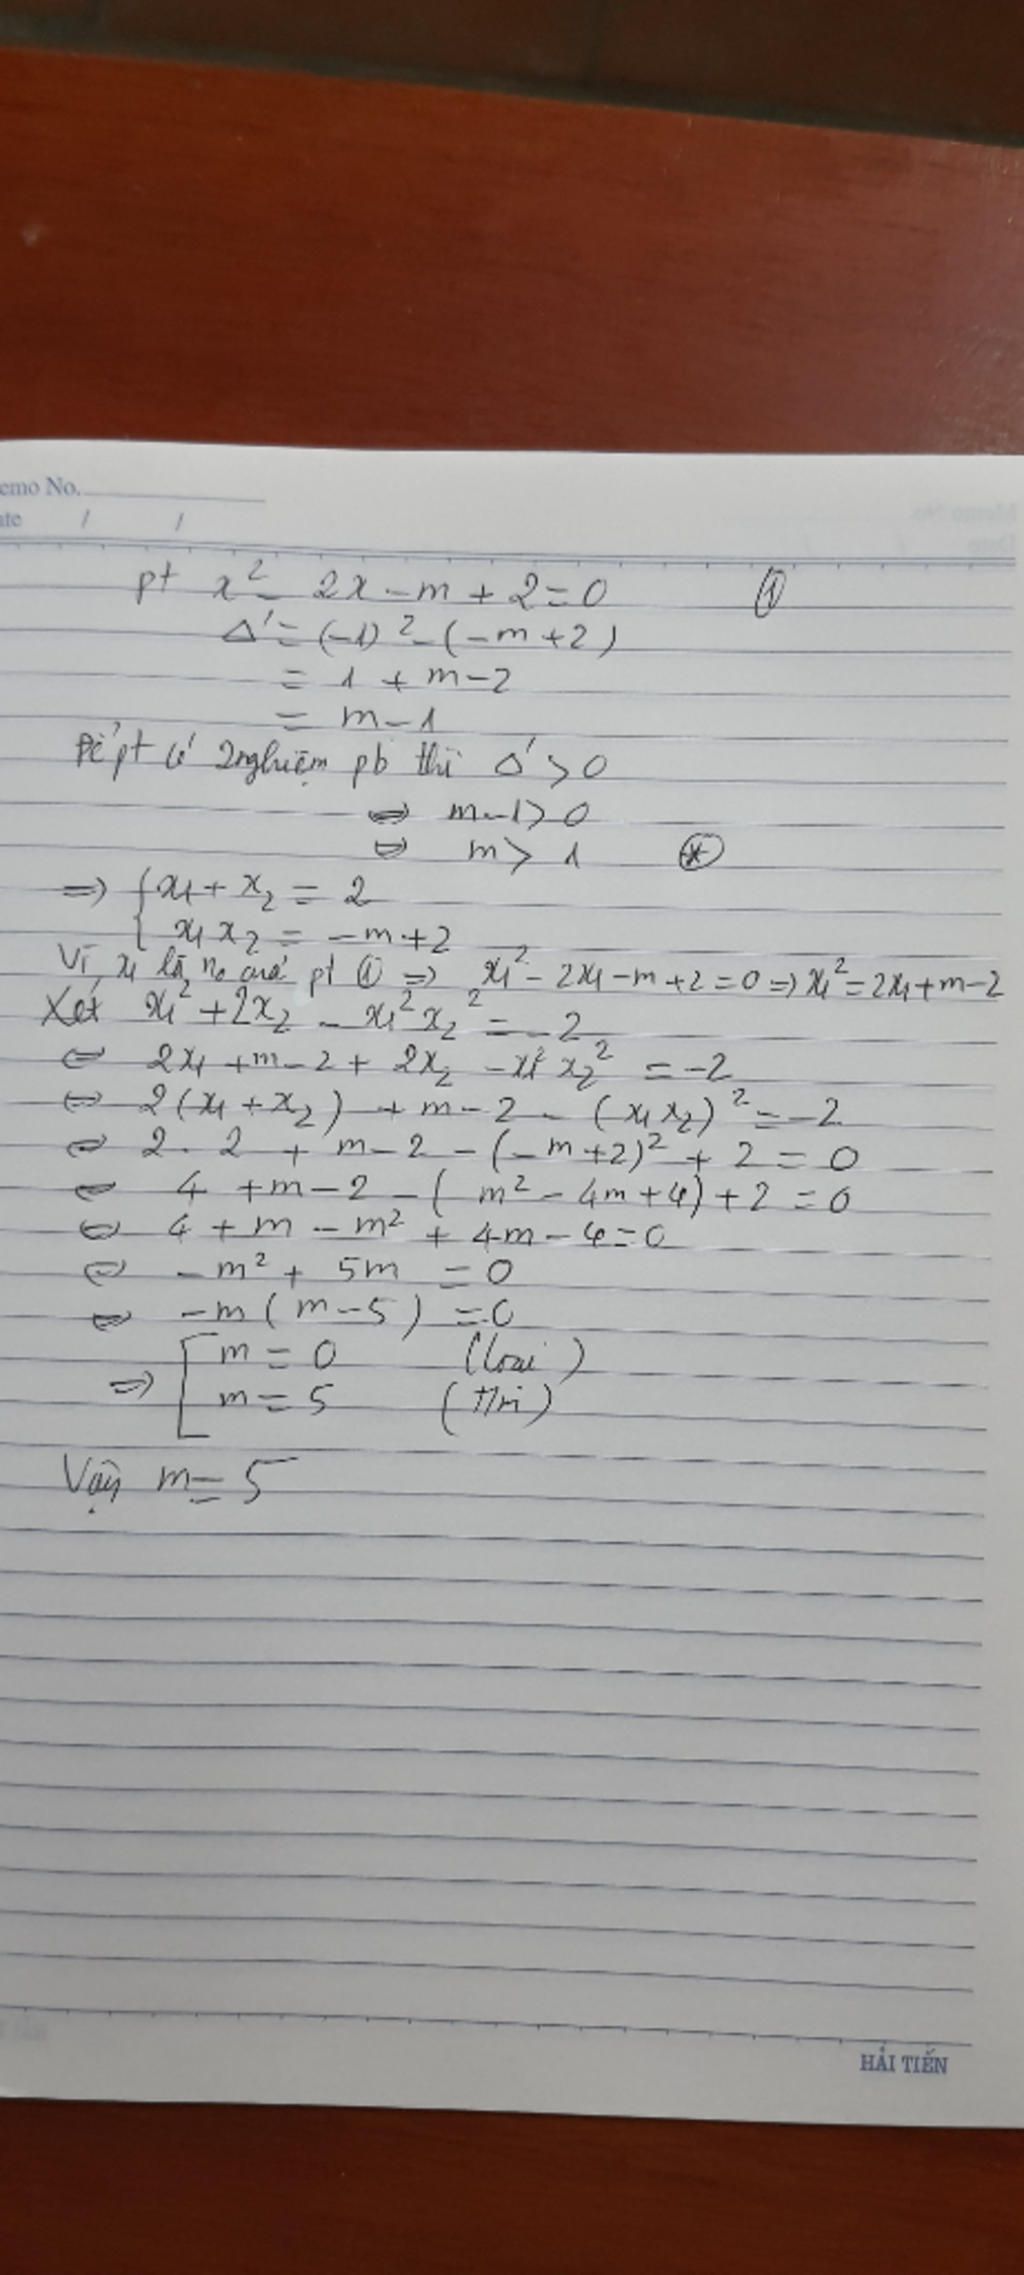 emo No.
ate / /
pt x² - 2x - m + 2 = 0 ①
Δ' = (-1)² - (-m + 2)
= 1 + m - 2
= m - 1
Để pt có 2 nghiệm pb thì Δ' > 0
⇔ m - 1 > 0
⇔ m > 1 (*)
⇒ { x₁ + x₂ = 2
x₁ x₂ = -m + 2
Vì x₁ là no của pt ① ⇒ x₁² - 2x₁ - m + 2 = 0 ⇒ x₁² = 2x₁ + m - 2
Xét x₁² + 2x₂ - x₁² x₂² = -2
⇔ 2x₁ + m - 2 + 2x₂ - x₁² x₂² = -2
⇔ 2(x₁ + x₂) + m - 2 - (x₁ x₂)² = -2
⇔ 2 . 2 + m - 2 - (-m + 2)² + 2 = 0
⇔ 4 + m - 2 - (m² - 4m + 4) + 2 = 0
⇔ 4 + m - m² + 4m - 4 = 0
⇔ -m² + 5m = 0
⇔ -m (m - 5) = 0
⇒ [ m = 0 (loại)
m = 5 (t/m)
Vậy m = 5
HẢI TIẾN